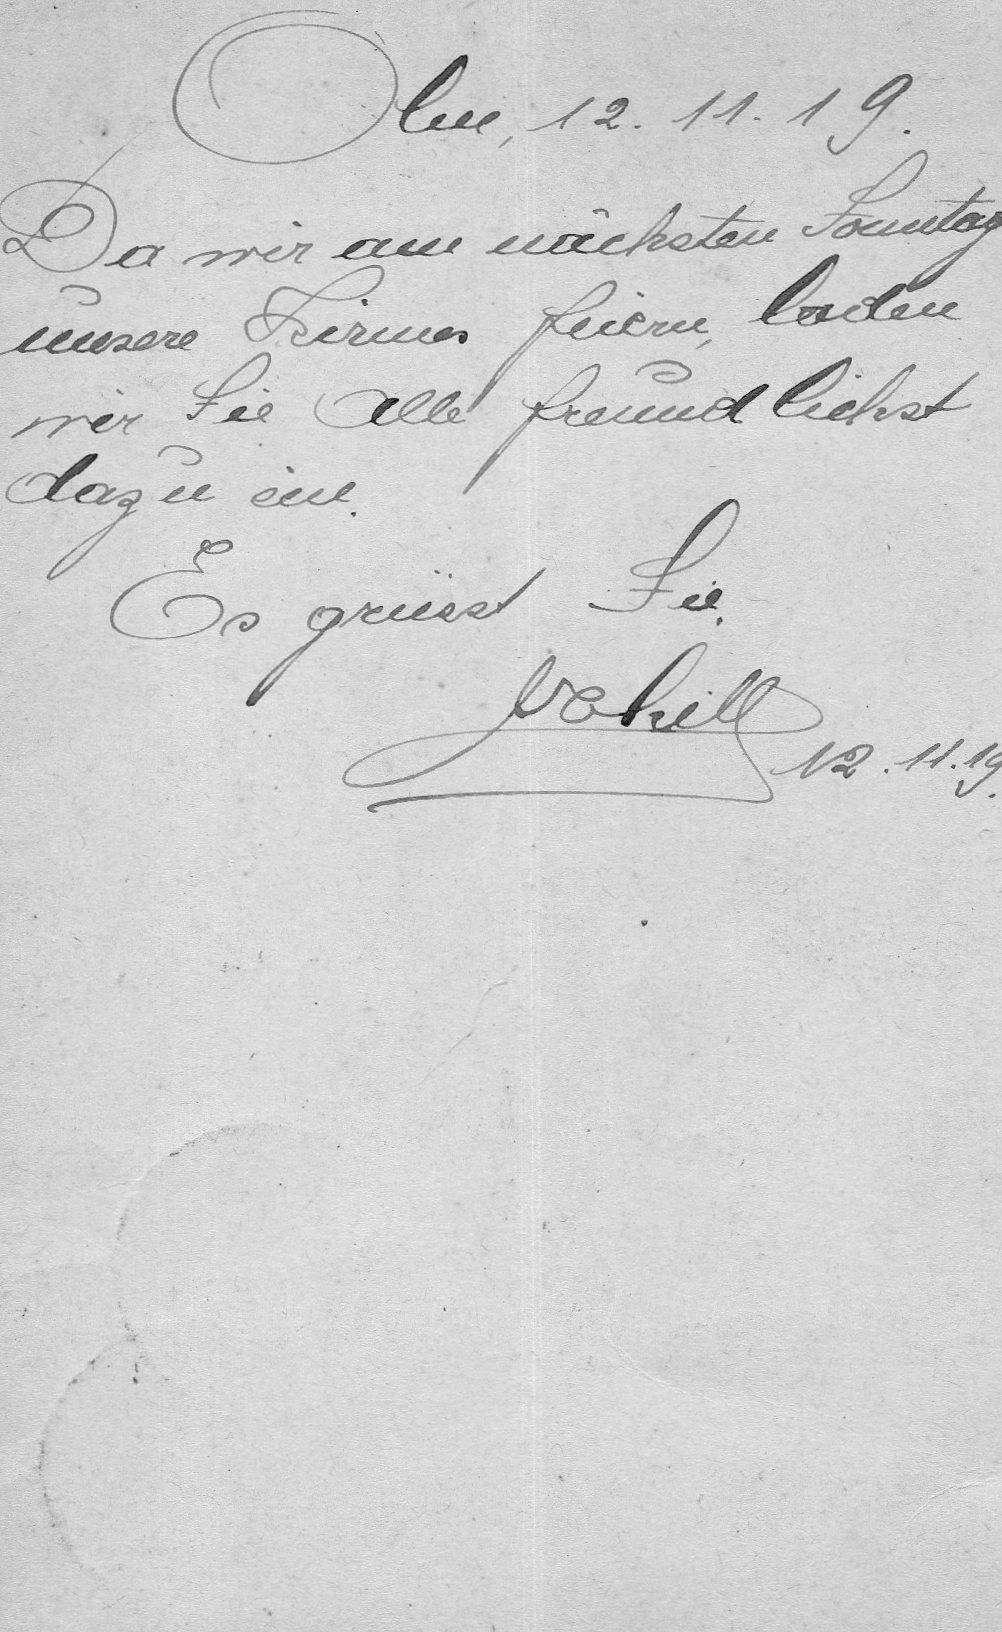 12. 11. 19.
Da wir am nächsten Sonntag
unsere Kirmes feiern, laden
wir Sie Alle freundlichst
dazu ein.
Es grüsst Sie.
12. 11. 19.